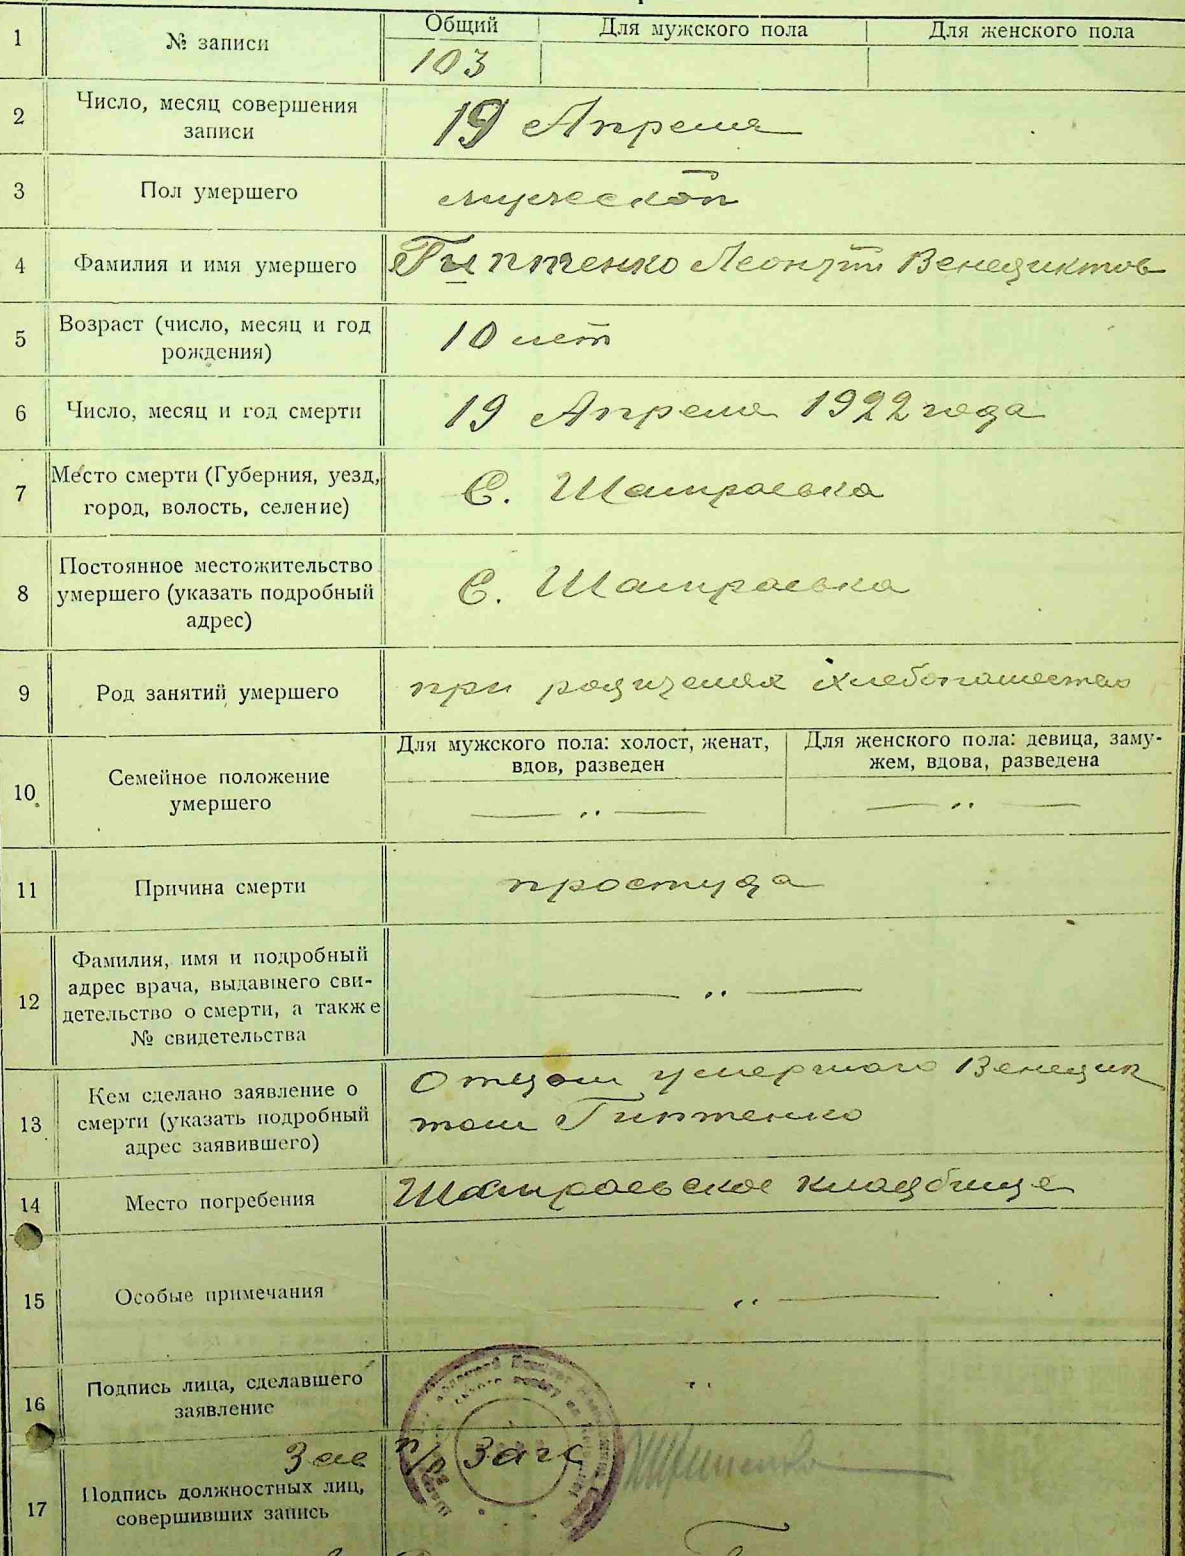 1 № записи Общий Для мужского пола Для женского пола
103
2 Число, месяц совершения
записи
19 Апреля
3 Пол умершего мужеской
4 Фамилия и имя умершего Гиптенко Леонтий Венедиктов
5 Возраст (число, месяц и год
рождения)
10 лет
6 Число, месяц и год смерти 19 Апреля 1922 года
7 Место смерти (Губерния, уезд,
город, волость, селение)
С. Шамраевка
8 Постоянное местожительство
умершего (указать подробный
адрес)
С. Шамраевка
9 Род занятий умершего при родителях хлебопашество
10. Семейное положение
умершего
Для мужского пола: холост, женат,
вдов, разведен
Для женского пола: девица, заму-
жем, вдова, разведена
— „ —
— „ —
11 Причина смерти простуда
12 Фамилия, имя и подробный
адрес врача, выдавшего сви-
детельство о смерти, а также
№ свидетельства
— „ —
13 Кем сделано заявление о
смерти (указать подробный
адрес заявившего)
Отцом умершого Венедик
том Гиптенко
14 Место погребения Шамраевское кладбище
15 Особые примечания — „ —
16 Подпись лица, сделавшего
заявление
„
Зав п/о Загс
17 Подпись должностных лиц,
совершивших запись